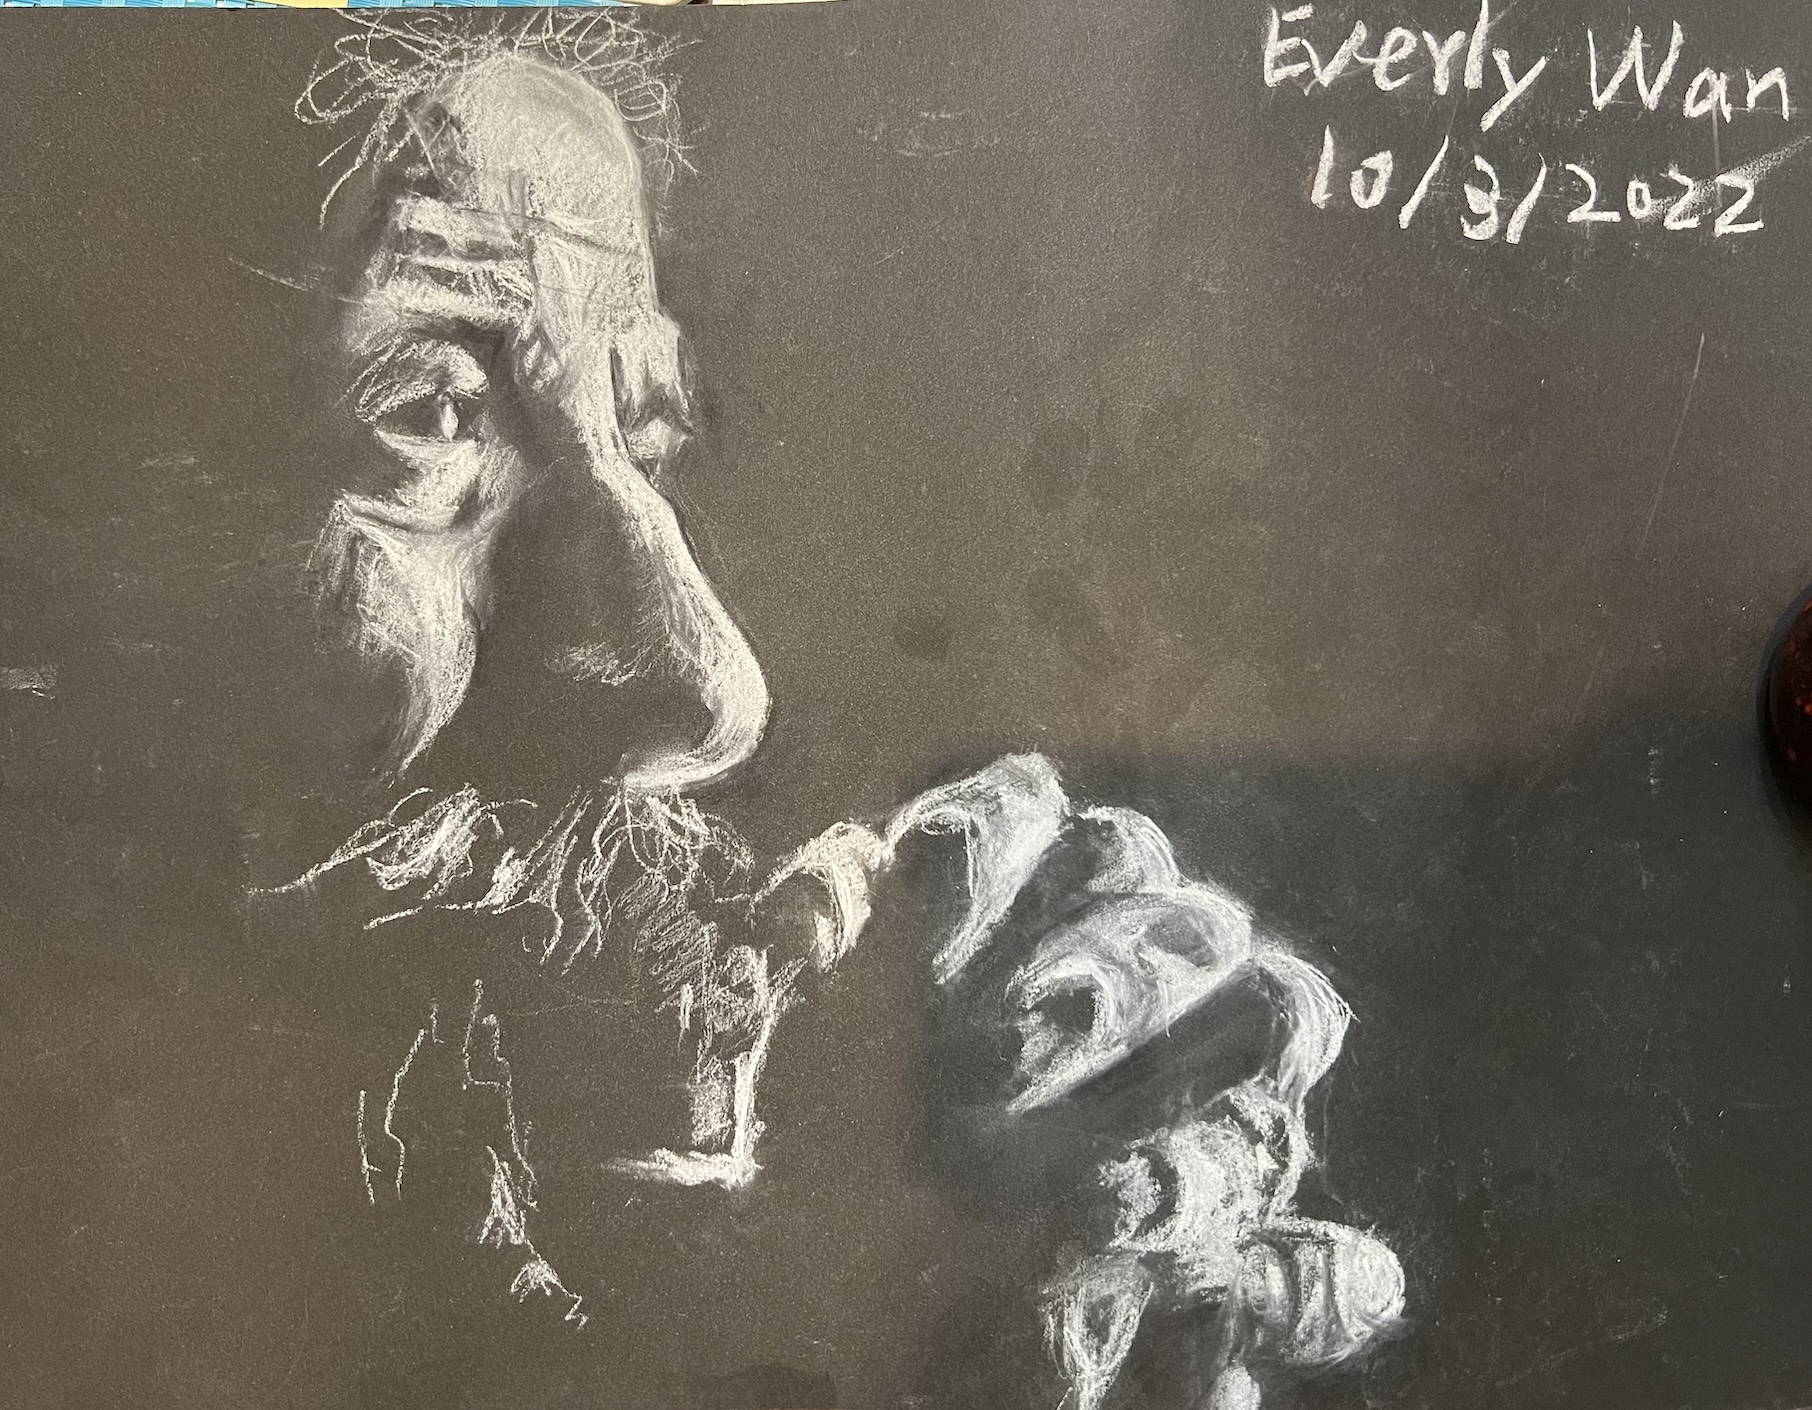 Everly Wan
10/3/2022